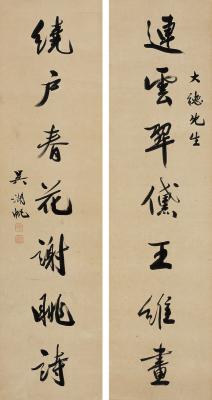 大德先生
連雲翠黛王維畫
繞户春花謝眺詩
吳湖帆